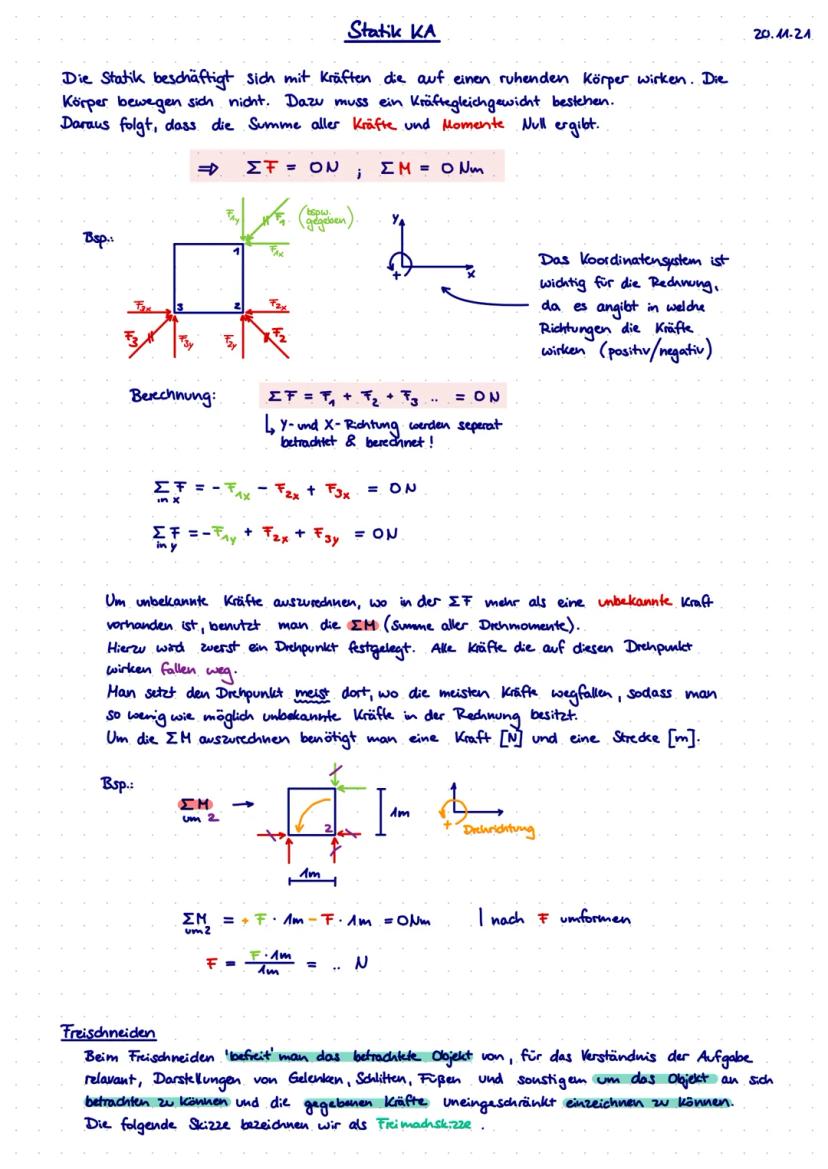 Statik KA
20.11.21
Die Statik beschäftigt sich mit Kräften die auf einen ruhenden Körper wirken. Die
Körper bewegen sich nicht. Dazu muss ein Kräftegleichgewicht bestehen.
Daraus folgt, dass die Summe aller Kräfte und Momente Null ergibt.
⇒ ΣF = 0N ; ΣM = 0 Nm
Bsp.:
F1y
F1
(bspw. gegeben)
F1x
1
3
2
F3x
F2x
F3
F3y
F2y
F2
y
x
+
Das Koordinatensystem ist
wichtig für die Rechnung,
da es angibt in welche
Richtungen die Kräfte
wirken (positiv/negativ)
Berechnung:
ΣF = F1 + F2 + F3 .. = 0N
↳ Y- und X-Richtung werden seperat
betrachtet & berechnet!
ΣF = - F1x - F2x + F3x = 0N
in x
ΣF = - F1y + F2x + F3y = 0N
in y
Um unbekannte Kräfte auszurechnen, wo in der ΣF mehr als eine unbekannte Kraft
vorhanden ist, benutzt man die ΣM (Summe aller Drehmomente).
Hierzu wird zuerst ein Drehpunkt festgelegt. Alle Kräfte die auf diesen Drehpunkt
wirken fallen weg.
Man setzt den Drehpunkt meist dort, wo die meisten Kräfte wegfallen, sodass man
so wenig wie möglich unbekannte Kräfte in der Rechnung besitzt.
Um die ΣM auszurechnen benötigt man eine Kraft [N] und eine Strecke [m].
Bsp.:
ΣM →
um 2
2
1m
1m
+ Drehrichtung
ΣM = + F · 1m - F · 1m = 0Nm | nach F umformen
um 2
F = F · 1m / 1m = .. N
Freischneiden
Beim Freischneiden 'befreit' man das betrachtete Objekt von, für das Verständnis der Aufgabe
relavant, Darstellungen von Gelenken, Schlitten, Füßen und sonstigem um das Objekt an sich
betrachten zu können und die gegebenen Kräfte uneingeschränkt einzeichnen zu können.
Die folgende Skizze bezeichnen wir als Freimachskizze.